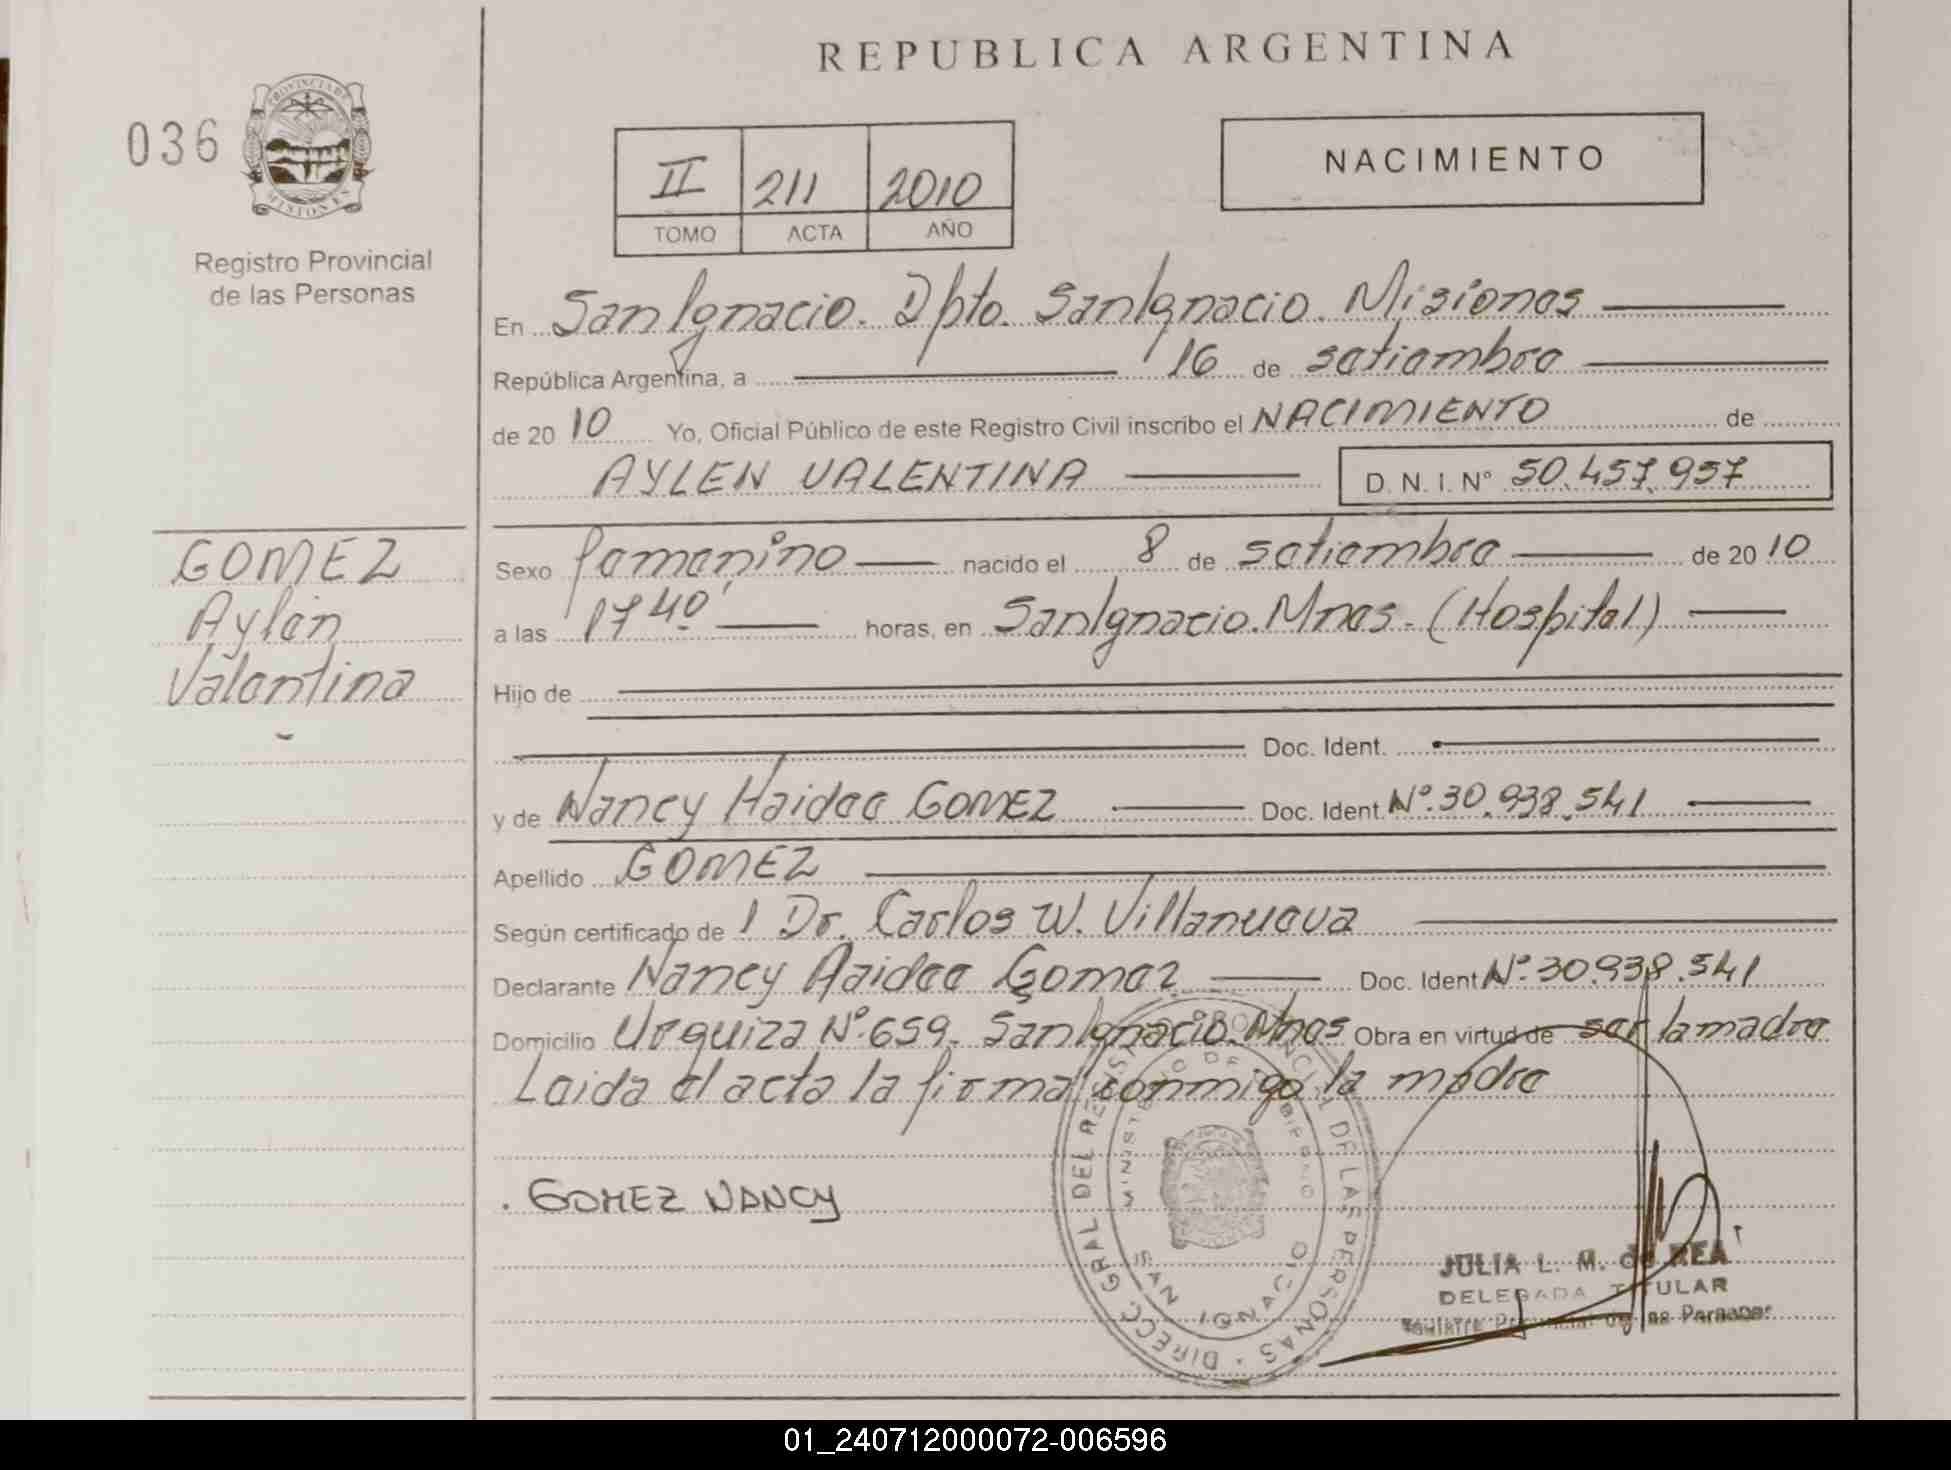 REPUBLICA ARGENTINA
036
PROVINCIA DE
MISIONES
Registro Provincial
de las Personas
II 211 2010
TOMO ACTA AÑO
NACIMIENTO
En San Ignacio. Dpto. San Ignacio. Misiones
República Argentina, a 16 de setiembre
de 20 10 Yo, Oficial Público de este Registro Civil inscribo el NACIMIENTO de
AYLEN VALENTINA D. N. I. N° 50.457.957
GOMEZ
Aylén
Valentina
Sexo femenino nacido el 8 de setiembre de 20 10
a las 17 40' horas, en San Ignacio. Mnes. (Hospital)
Hijo de
Doc. Ident.
y de Nancy Haidee GOMEZ Doc. Ident. N°.30.938.541
Apellido GOMEZ
Según certificado de l Dr. Carlos W. Villanueva
Declarante Nancy Haidee Gomez Doc. Ident N°.30.938.541
Domicilio Urquiza N°.659. San Ignacio. Mnes Obra en virtud de ser la madre
Leida el acta la firma conmigo la madre
. GOMEZ NANCY
DIRECC. GRAL DEL REGISTRO PROVINCIAL DE LAS PERSONAS
MINISTERIO DE GOBIERNO
SAN IGNACIO
JULIA L. M. de REA
DELEGADA TITULAR
Registro Provincial de las Personas
01_240712000072-006596